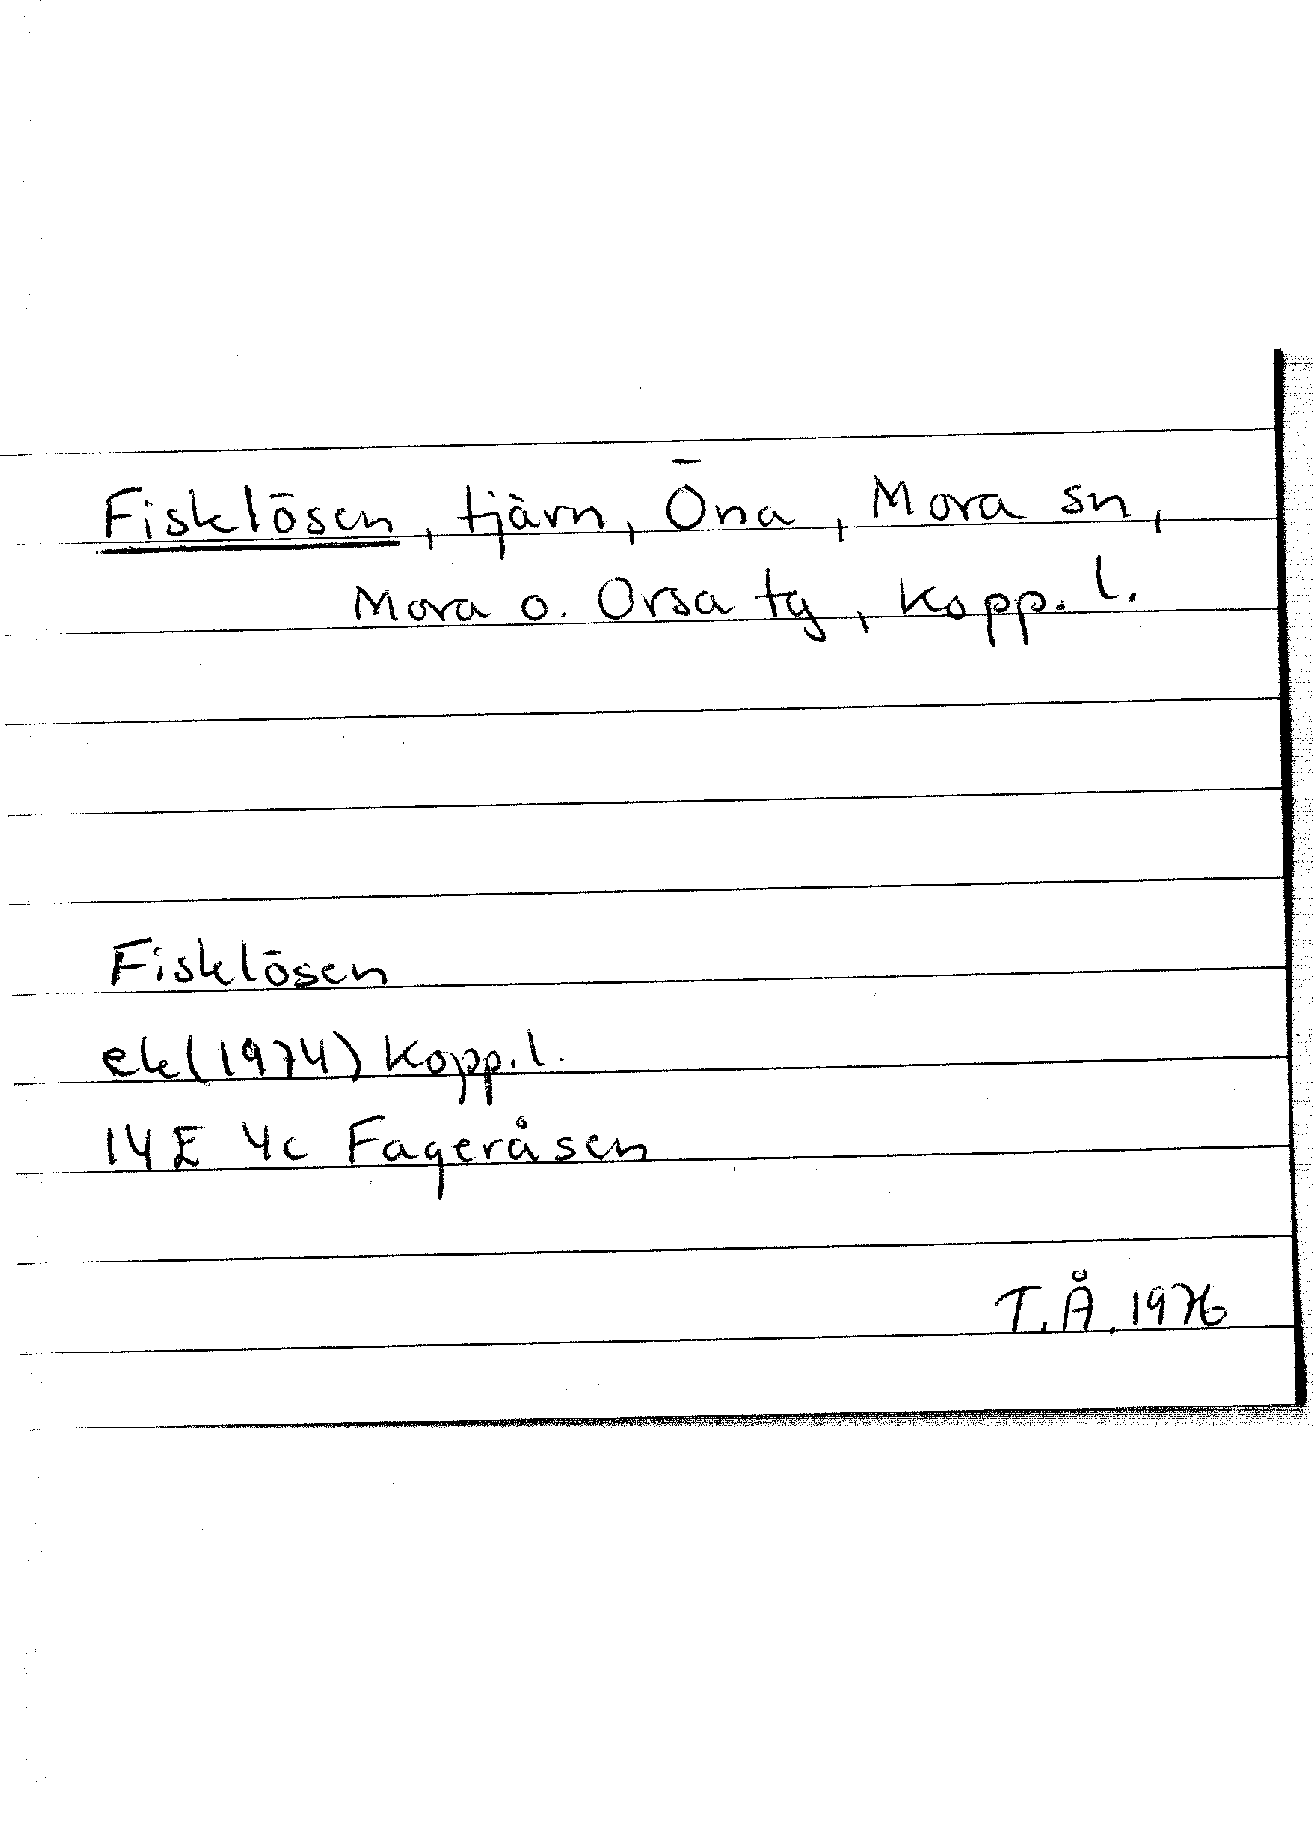 Fisklösen, tjärn, Öna, Mora sn,
Mora o. Orsa tg, Kopp. l.
Fisklösen
ek (1974) Kopp. l.
14E 4c Fageråsen
T.Å. 1976